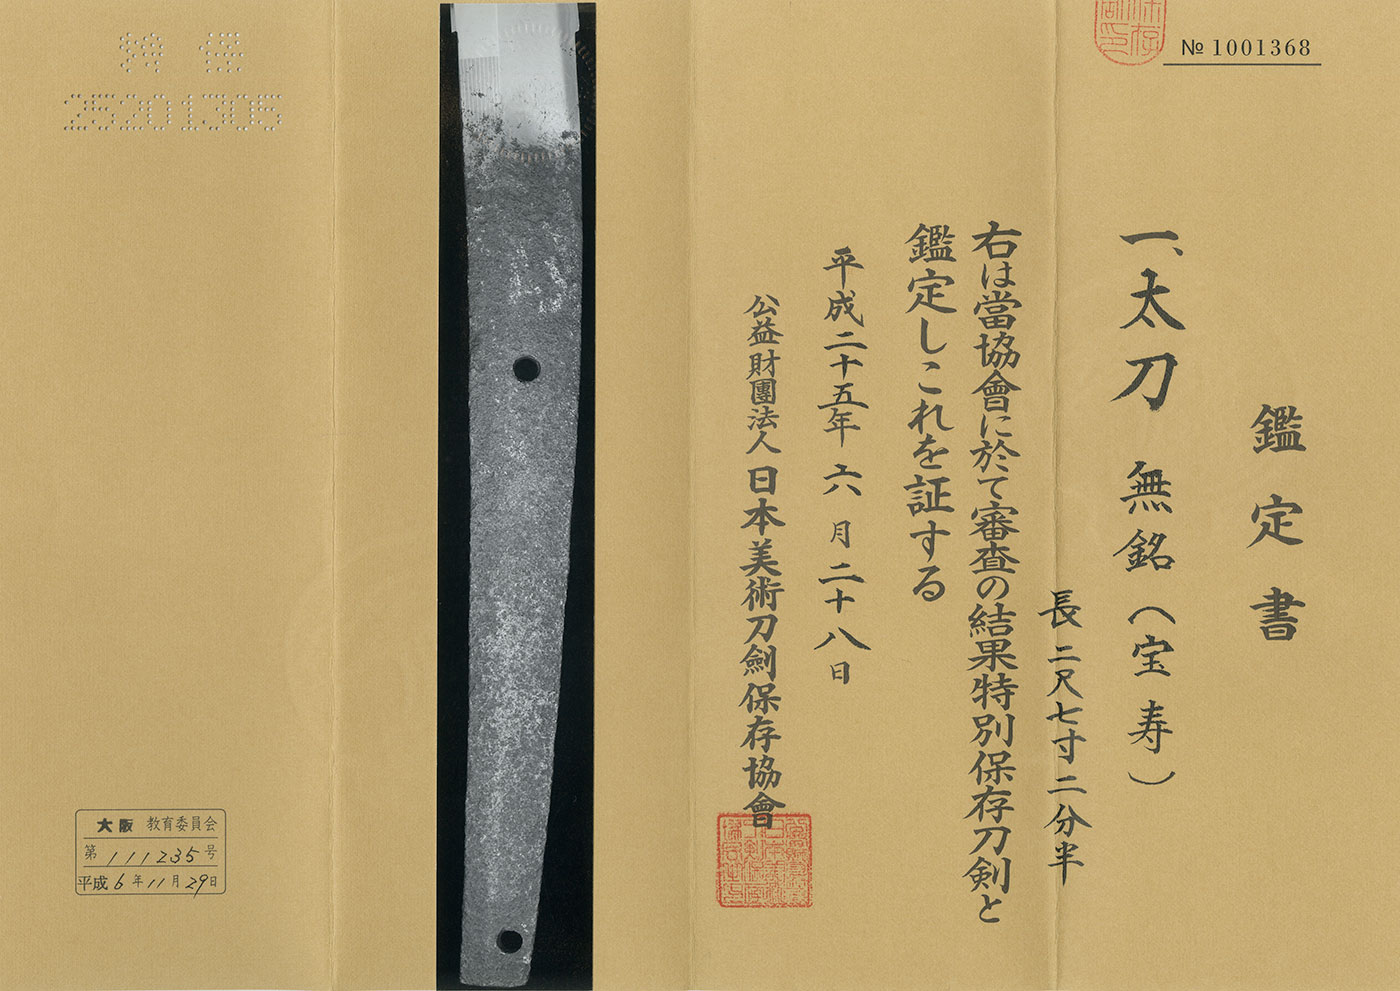 № 1001368
鑑定書
一、太刀 無銘（宝寿）
長 二尺七寸二分半
右は當協會に於て審査の結果特別保存刀剣と
鑑定しこれを証する
平成二十五年六月二十八日
公益財團法人 日本美術刀劍保存協會
特保
25201305
大阪 教育委員会
第 111235 号
平成 6 年 11 月 29 日